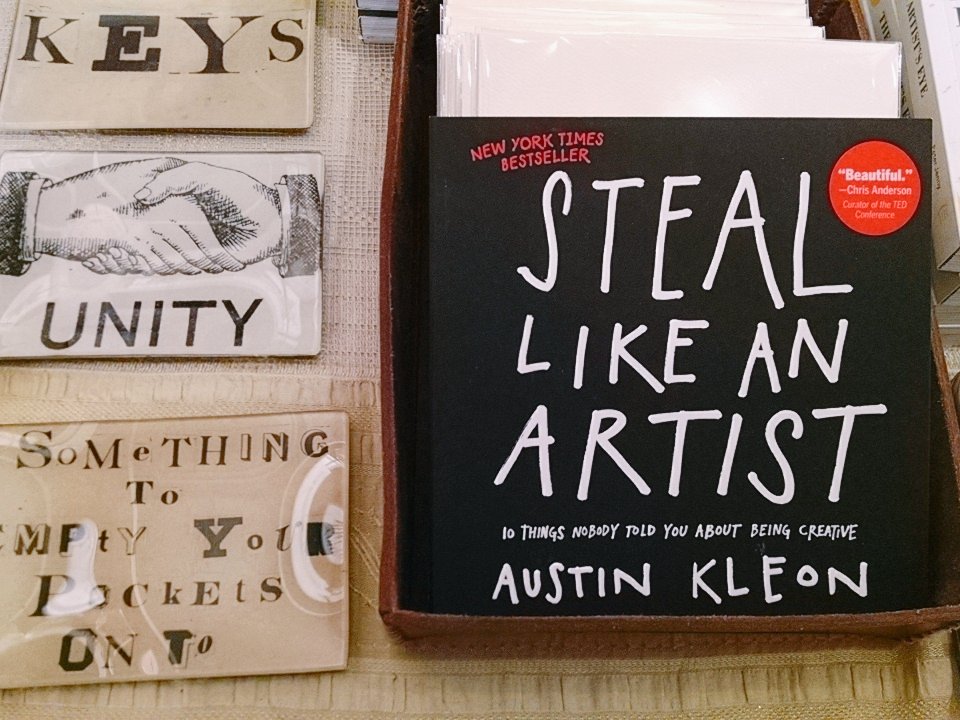 KEYS
UNITY
SoMeTHING
To
EMPtY YoUR
PockEts
ON To
NEW YORK TIMES
BESTSELLER
STEAL
LIKE AN
ARTIST
10 THINGS NOBODY TOLD YOU ABOUT BEING CREATIVE
AUSTIN KLEON
“Beautiful.”
—Chris Anderson
Curator of the TED
Conference
ARTIST'S EYE